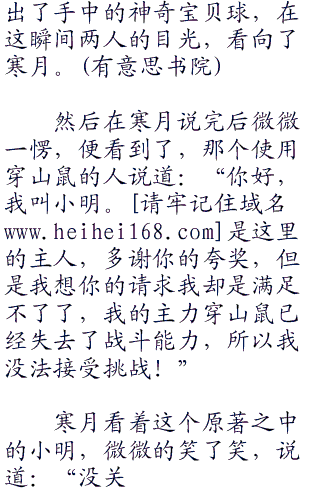 出了手中的神奇宝贝球，在
这瞬间两人的目光，看向了
寒月。(有意思书院)
然后在寒月说完后微微
一愣，便看到了，那个使用
穿山鼠的人说道：“你好，
我叫小明。[请牢记住域名
www.heihei168.com]是这里
的主人，多谢你的夸奖，但
是我想你的请求我却是满足
不了了，我的主力穿山鼠已
经失去了战斗能力，所以我
没法接受挑战！”
寒月看着这个原著之中
的小明，微微的笑了笑，说
道：“没关